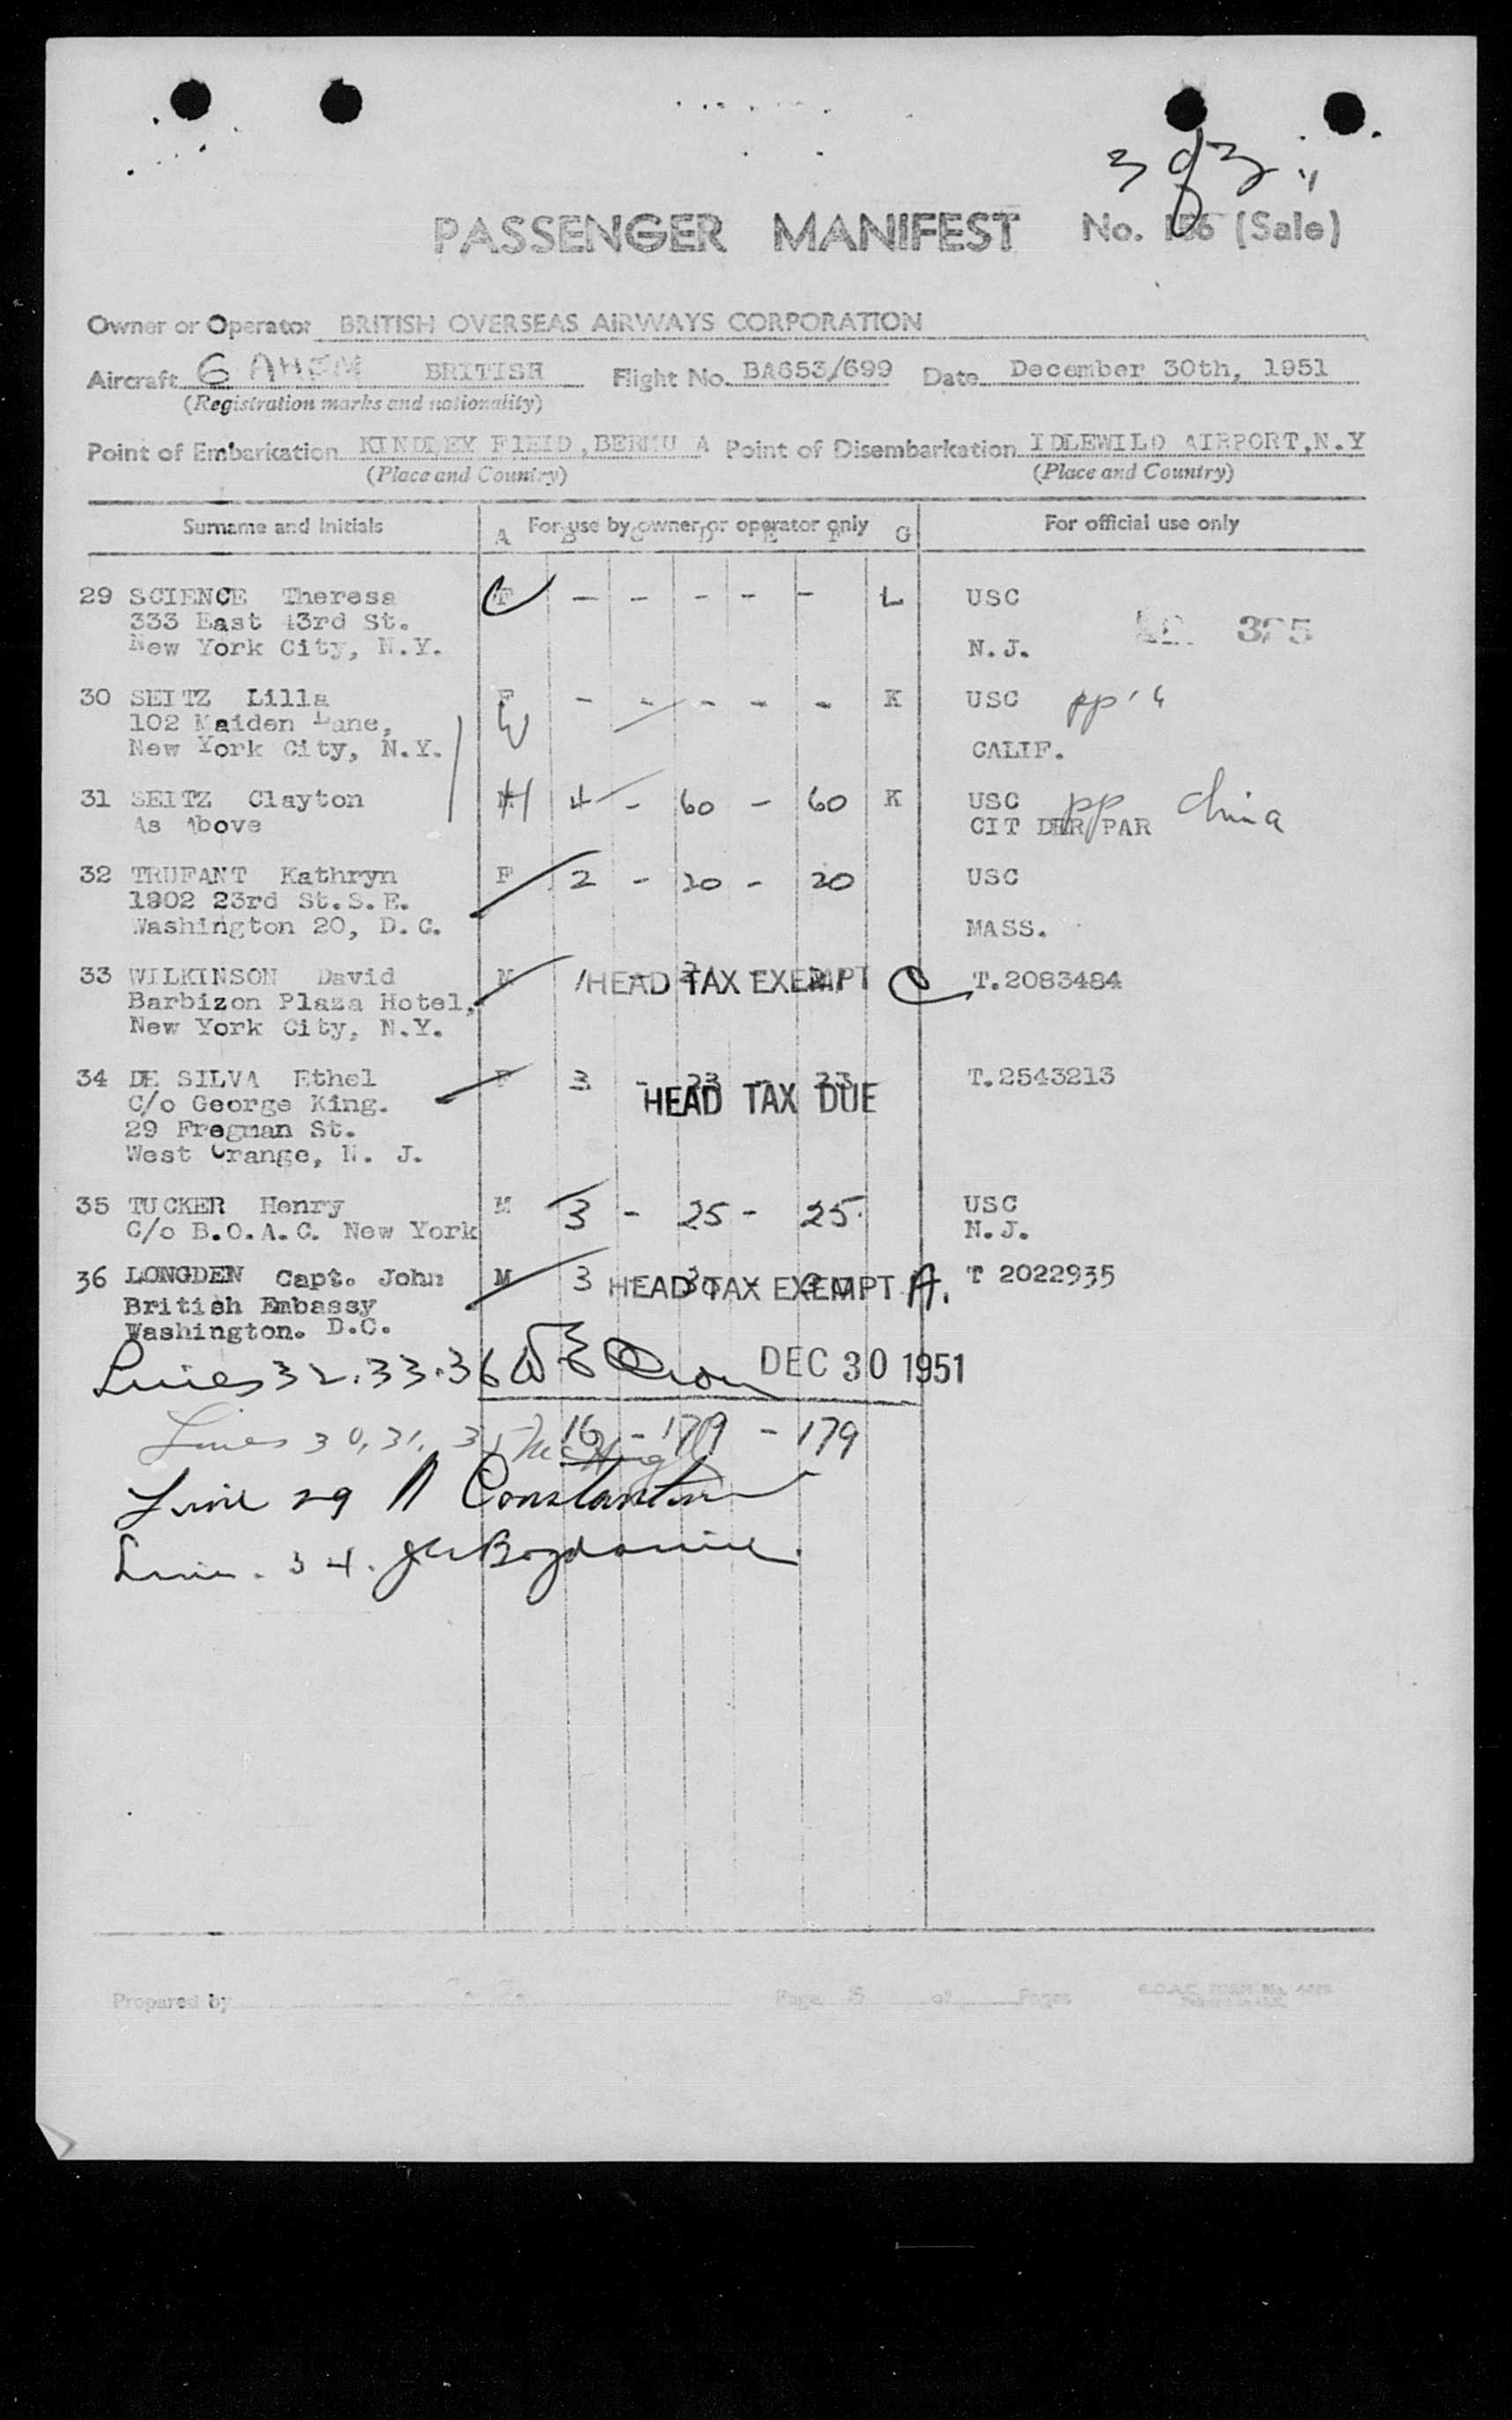 3 of 3
PASSENGER MANIFEST No. (Sale)
Owner or Operator BRITISH OVERSEAS AIRWAYS CORPORATION
Aircraft G AHEM BRITISH Flight No. BA653/699 Date December 30th, 1951
(Registration marks and nationality)
Point of Embarkation KINDLEY FIELD, BERMU A Point of Disembarkation IDLEWILD AIRPORT, N.Y
(Place and Country) (Place and Country)
Surname and Initials For use by owner or operator only For official use only
A B C D E F G
29 SCIENCE Theresa F - - - - - L USC
333 East 43rd St. 325
New York City, N.Y. N.J.
30 SEITZ Lilla F - - - - - K USC pp
102 Maiden Lane, W
New York City, N.Y. CALIF.
31 SEITZ Clayton M H 4 - 60 - 60 K USC pp China
As Above CIT DER PAR
32 TRUFANT Kathryn F 2 - 20 - 20 USC
1902 23rd St. S.E.
Washington 20, D.C. MASS.
33 WILKINSON David M HEAD TAX EXEMPT C T.2083484
Barbizon Plaza Hotel,
New York City, N.Y.
34 DE SILVA Ethel F 3 - 23 - 23 T.2543213
C/o George King. HEAD TAX DUE
29 Fregman St.
West Orange, N. J.
35 TUCKER Henry M 3 - 25 - 25 USC
C/o B.O.A.C. New York N.J.
36 LONGDEN Capt. John M 3 HEAD TAX EXEMPT A. T 2022935
British Embassy
Washington. D.C.
Lines 32.33.36 DEC 30 1951
Lines 30, 31, 16 - 179 - 179
Line 29 A Constantine
Line. 34.
Prepared by Page of Pages